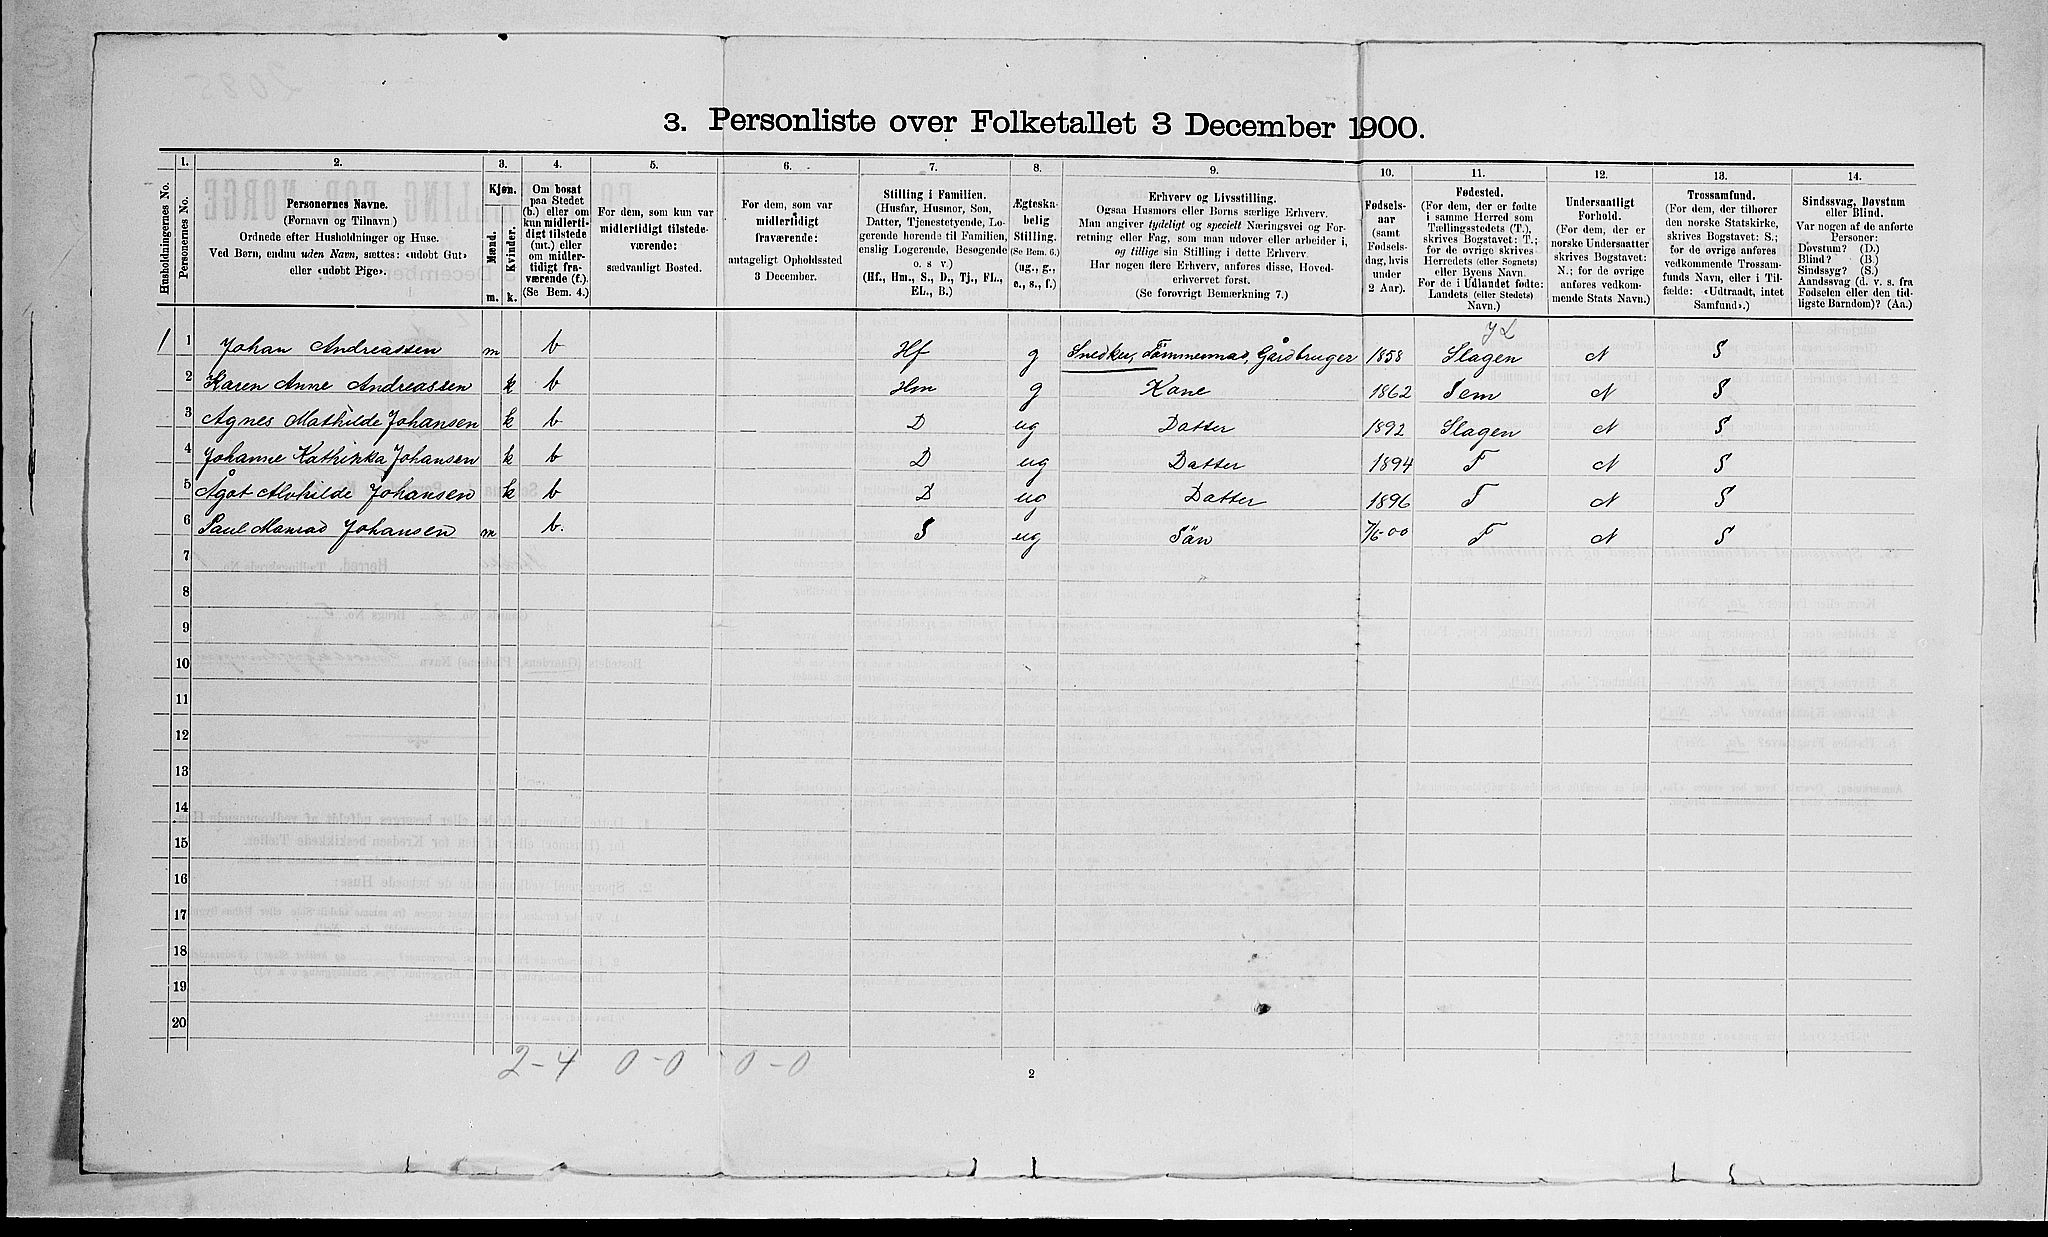 3. Personliste over Folketallet 3 December 1900.
Husholdningernes No.
1.
Personernes No.
2.
Personernes Navne.
(Fornavn og Tilnavn)
Ordnede efter Husholdninger og Huse.
Ved Børn, endnu uden Navn, sættes: «udøbt Gut»
eller «udøbt Pige».
3.
Kjøn.
Mænd.
Kvinder.
m. k.
4.
Om bosat
paa Stedet
(b.) eller om
kun midlerti-
digt tilstede
(mt.) eller
om midler-
tidigt fra-
værende (f.).
(Se Bem. 4.)
5.
For dem, som kun var
midlertidigt tilstede-
værende:
sædvanligt Bosted.
6.
For dem, som var
midlertidigt
fraværende:
antageligt Opholdssted
3 December.
7.
Stilling i Familien.
(Husfar, Husmor, Søn,
Datter, Tjenestetyende, Lo-
gerende hørende til Familien,
enslig Logerende, Besøgende
o. s v.)
(Hf., Hm., S., D., Tj., FL.,
EL., B.)
8.
Ægteska-
belig
Stilling.
(Se Bem. 6.)
(ug., g.,
e., s., f.)
9.
Erhverv og Livsstilling.
Ogsaa Husmors eller Børns særlige Erhverv.
Man angiver tydeligt og specielt Næringsvei og For-
retning eller Fag, som man udøver eller arbeider i,
og tillige sin Stilling i dette Erhverv.
Har nogen flere Erhverv, anføres disse, Hoved-
erhvervet først.
(Se forøvrigt Bemærkning 7.)
10.
Fødsels-
aar
(samt
Fødsels-
dag, hvis
under
2 Aar).
11.
Fødested.
(For dem, der er fødte
i samme Herred som
Tællingsstedets (T.),
skrives Bogstavet: T.;
for de øvrige skrives
Herredets (eller Sognets)
eller Byens Navn.
For de i Udlandet fødte:
Landets (eller Stedets)
Navn.)
12.
Undersaatligt
Forhold.
(For dem, der er
norske Undersaatter
skrives Bogstavet:
N.; for de øvrige
anføres vedkom-
mende Stats Navn.)
13.
Trossamfund.
(For dem, der tilhører
den norske Statskirke,
skrives Bogstavet: S.;
for de øvrige anføres
vedkommende Trossam-
funds Navn, eller i Til-
fælde: «Udtraadt, intet
Samfund».)
14.
Sindssvag, Døvstum
eller Blind.
Var nogen af de anførte
Personer:
Døvstum? (D.)
Blind? (B.)
Sindssyg? (S.)
Aandssvag (d. v. s. fra
Fødselen eller den tid-
ligste Barndom)? (Aa.)
1 1 Johan Andreassen m b Hf g Snedker, Tømmermad, Gårdbruger 1858 Slagen N S
2 Karen Anne Andreassen k b Hm g Kone 1862 Sem N S
3 Agnes Mathilde Johansen k b D ug Datter 1892 Slagen N S
4 Johanne Kathinka Johansen k b D ug Datter 1894 T N S
5 Ågot Alvhilde Johansen k b D ug Datter 1896 T N S
6 Paul Johansen m b. S ug Sön 7/6-00 T N S
7
8
9
10
11
12
13
14
15
16
17
18
19
20
2-4 0-0 0-0
2